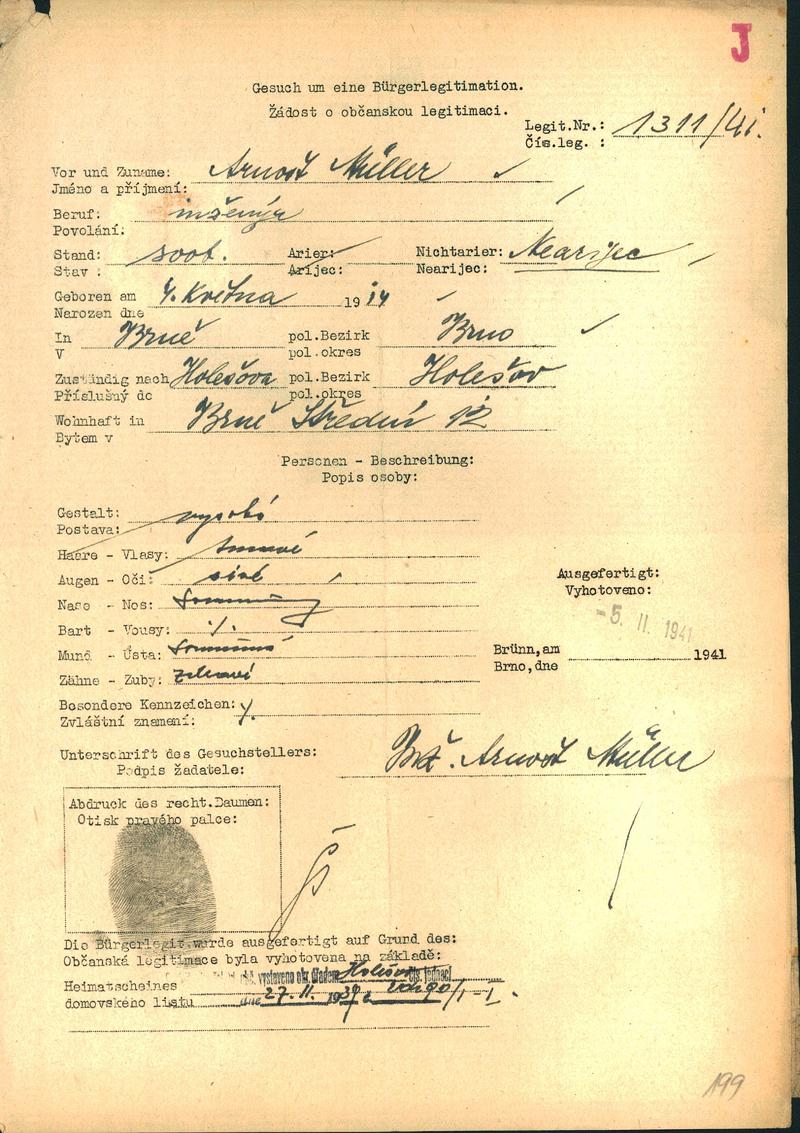 J
Gesuch um eine Bürgerlegitimation.
Žádost o občanskou legitimaci.
Legit.Nr.: 1311/41.
Čís.leg. :
Vor und Zuname: Arnošt Müller
Jméno a příjmení:
Beruf: inženýr
Povolání:
Stand: svob. Arier: Nichtarier: Nearijec
Stav : Arijec: Nearijec:
Geboren am 4. Května 1914
Narozen dne
In Brně pol.Bezirk Brno
V pol.okres
Zuständig nach Holešova pol.Bezirk Holešov
Příslušný do pol.okres
Wohnhaft in Brně Střední 12
Bytem v
Personen - Beschreibung:
Popis osoby:
Gestalt: vysoká
Postava:
Haare - Vlasy: tmavé
Augen - Oči: sivé
Nase - Nos:
Bart - Vousy: ./.
Mund - Ústa: souměrná
Zähne - Zuby: zdravé
Ausgefertigt:
Vyhotoveno:
-5. II. 1941
Brünn, am 1941
Brno, dne
Besondere Kennzeichen:
Zvláštní znamení:
Unterschrift des Gesuchstellers: Inž. Arnošt Müller
Podpis žadatele:
Abdruck des recht.Daumen:
Otisk pravého palce:
Die Bürgerlegit.wurde ausgefertigt auf Grund des:
Občanská legitimace byla vyhotovena na základě:
vystaveno okr. úřadem Holešov čís. jednací
Heimatscheines
domovského listu dne 27. II. 1939
199